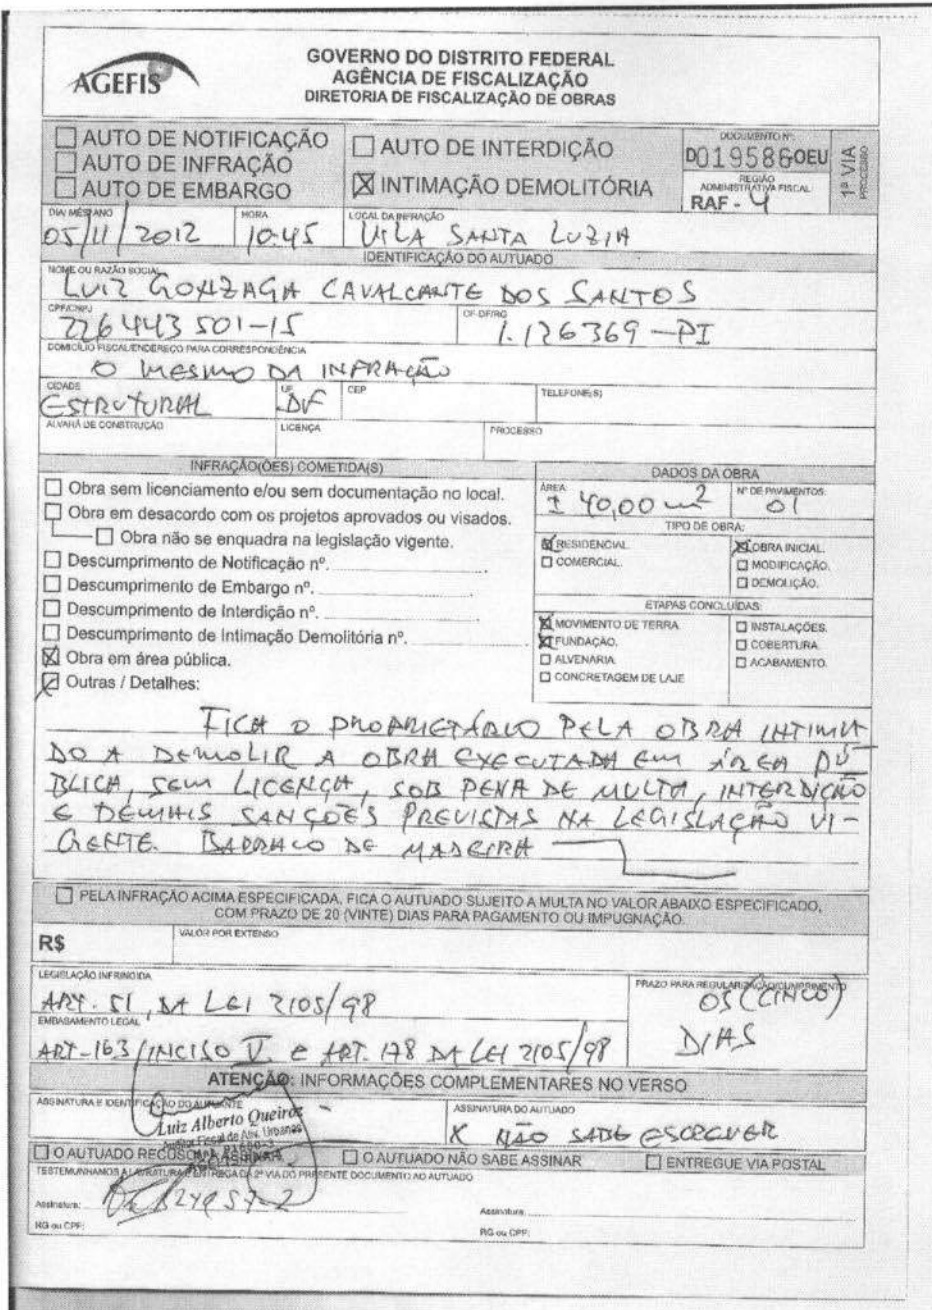 AGEFIS
GOVERNO DO DISTRITO FEDERAL
AGÊNCIA DE FISCALIZAÇÃO
DIRETORIA DE FISCALIZAÇÃO DE OBRAS
AUTO DE NOTIFICAÇÃO
AUTO DE INFRAÇÃO
AUTO DE EMBARGO
AUTO DE INTERDIÇÃO
X INTIMAÇÃO DEMOLITÓRIA
DOCUMENTO Nº:
D019586-OEU
REGIÃO
ADMINISTRATIVA FISCAL:
RAF - 4
1ª VIA
PROCESSO
DIA/ MÊS/ ANO
05/11/2012
HORA
10:45
LOCAL DA INFRAÇÃO
VILA SANTA LUZIA
IDENTIFICAÇÃO DO AUTUADO
NOME OU RAZÃO SOCIAL
LUIZ GONZAGA CAVALCANTE DOS SANTOS
CPF/CNPJ
226443501-15
CF-DF/RG
1.126369-PI
DOMICÍLIO FISCAL/ENDEREÇO PARA CORRESPONDÊNCIA
O MESMO DA INFRAÇÃO
CIDADE
ESTRUTURAL
UF
DF
CEP
TELEFONE(S)
ALVARÁ DE CONSTRUÇÃO
LICENÇA
PROCESSO
INFRAÇÃO(ÕES) COMETIDA(S)
Obra sem licenciamento e/ou sem documentação no local.
Obra em desacordo com os projetos aprovados ou visados.
Obra não se enquadra na legislação vigente.
Descumprimento de Notificação nº.
Descumprimento de Embargo nº.
Descumprimento de Interdição nº.
Descumprimento de Intimação Demolitória nº.
X Obra em área pública.
Outras / Detalhes:
DADOS DA OBRA
ÁREA
± 40,00 m²
Nº DE PAVIMENTOS
01
TIPO DE OBRA:
X RESIDENCIAL.
COMERCIAL.
X OBRA INICIAL.
MODIFICAÇÃO.
DEMOLIÇÃO.
ETAPAS CONCLUÍDAS:
X MOVIMENTO DE TERRA.
X FUNDAÇÃO.
ALVENARIA.
CONCRETAGEM DE LAJE
INSTALAÇÕES.
COBERTURA.
ACABAMENTO.
FICA O PROPRIETÁRIO PELA OBRA INTIMA
DO A DEMOLIR A OBRA EXECUTADA EM ÁREA PÚ
BLICA, SEM LICENÇA, SOB PENA DE MULTA, INTERDIÇÃO
E DEMAIS SANÇÕES PREVISTAS NA LEGISLAÇÃO VI-
GENTE. BARRACO DE MADEIRA
PELA INFRAÇÃO ACIMA ESPECIFICADA, FICA O AUTUADO SUJEITO A MULTA NO VALOR ABAIXO ESPECIFICADO,
COM PRAZO DE 20 (VINTE) DIAS PARA PAGAMENTO OU IMPUGNAÇÃO.
R$
VALOR POR EXTENSO
LEGISLAÇÃO INFRINGIDA
ART. 51, DA LEI 2105/98
PRAZO PARA REGULARIZAÇÃO/CUMPRIMENTO
05 (CINCO)
DIAS
EMBASAMENTO LEGAL
ART-163/INCISO V. E ART. 178 DA LEI 2105/98
ATENÇÃO: INFORMAÇÕES COMPLEMENTARES NO VERSO
ASSINATURA E IDENTIFICAÇÃO DO AUTUANTE
Luiz Alberto Queiroz
Auditor Fiscal de Ativ. Urbanas
ASSINATURA DO AUTUADO
X NÃO SABE ESCREVER
O AUTUADO RECUSOU A ASSINAR
O AUTUADO NÃO SABE ASSINAR
ENTREGUE VIA POSTAL
TESTEMUNHAMOS A LAVRATURA E ENTREGA DA 2ª VIA DO PRESENTE DOCUMENTO AO AUTUADO
Assinatura:
RG ou CPF:
Assinatura:
RG ou CPF: